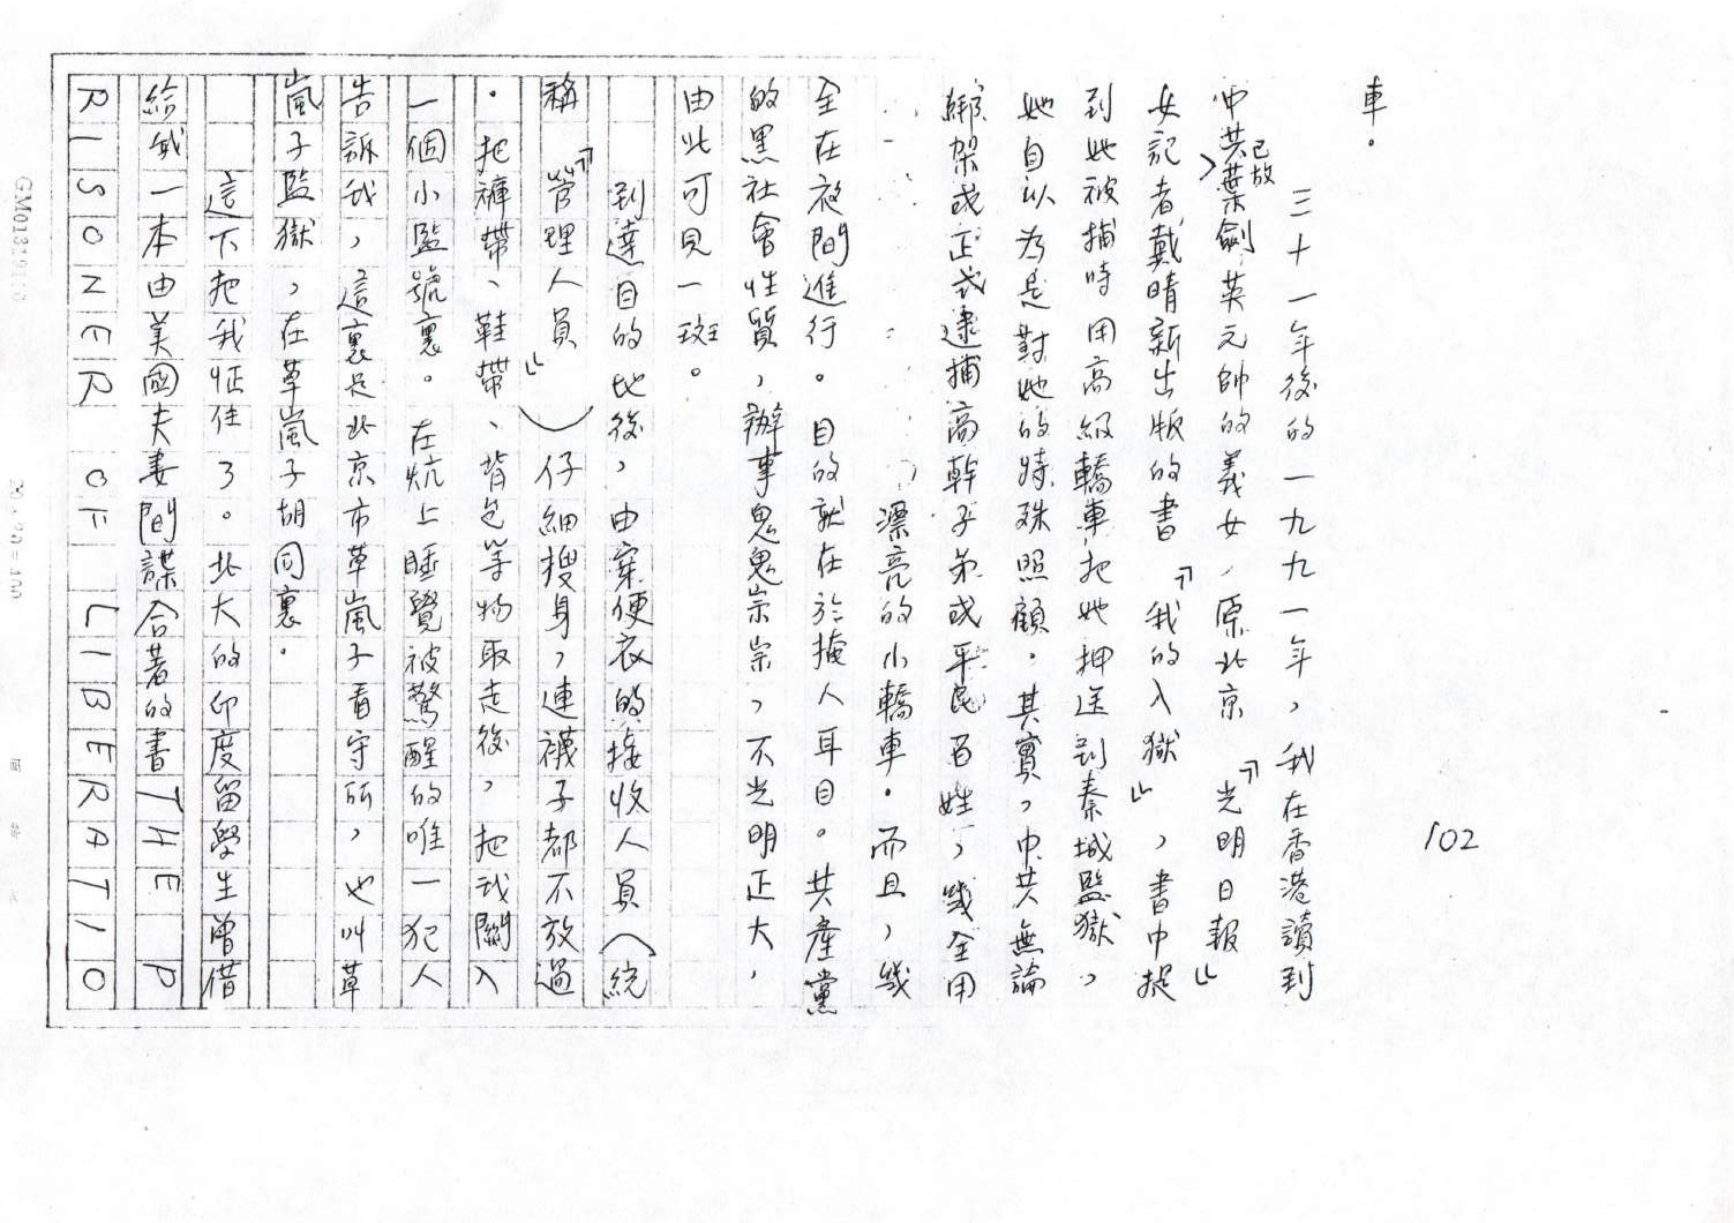 102
車。
三十一年後的一九九一年，我在香港讀到
中共已故葉劍英元帥的義女，原北京『光明日報』
女記者戴晴新出版的書『我的入獄』，書中提
到她被捕時用高級轎車把她押送到秦城監獄，
她自以為是對她的特殊照顧。其實，中共無論
綁架或正式逮捕高幹子弟或平民百姓，幾全用
漂亮的小轎車。而且，幾
全在夜間進行。目的就在於掩人耳目。共產黨
的黑社會性質，辦事鬼鬼祟祟，不光明正大，
由此可見一斑。
到達目的地後，由穿便衣的接收人員（統
稱『管理人員』）仔細搜身，連襪子都不放過
。把褲帶、鞋帶、背包等物取走後，把我關入
一個小監號裏。在炕上睡覺被驚醒的唯一犯人
告訴我，這裏是北京市草嵐子看守所，也叫草
嵐子監獄，在草嵐子胡同裏。
這下把我怔住了。北大的印度留學生曾借
給我一本由美國夫妻間諜合著的書THE P
RISONER OF LIBERATIO
GM013191
20×20=400